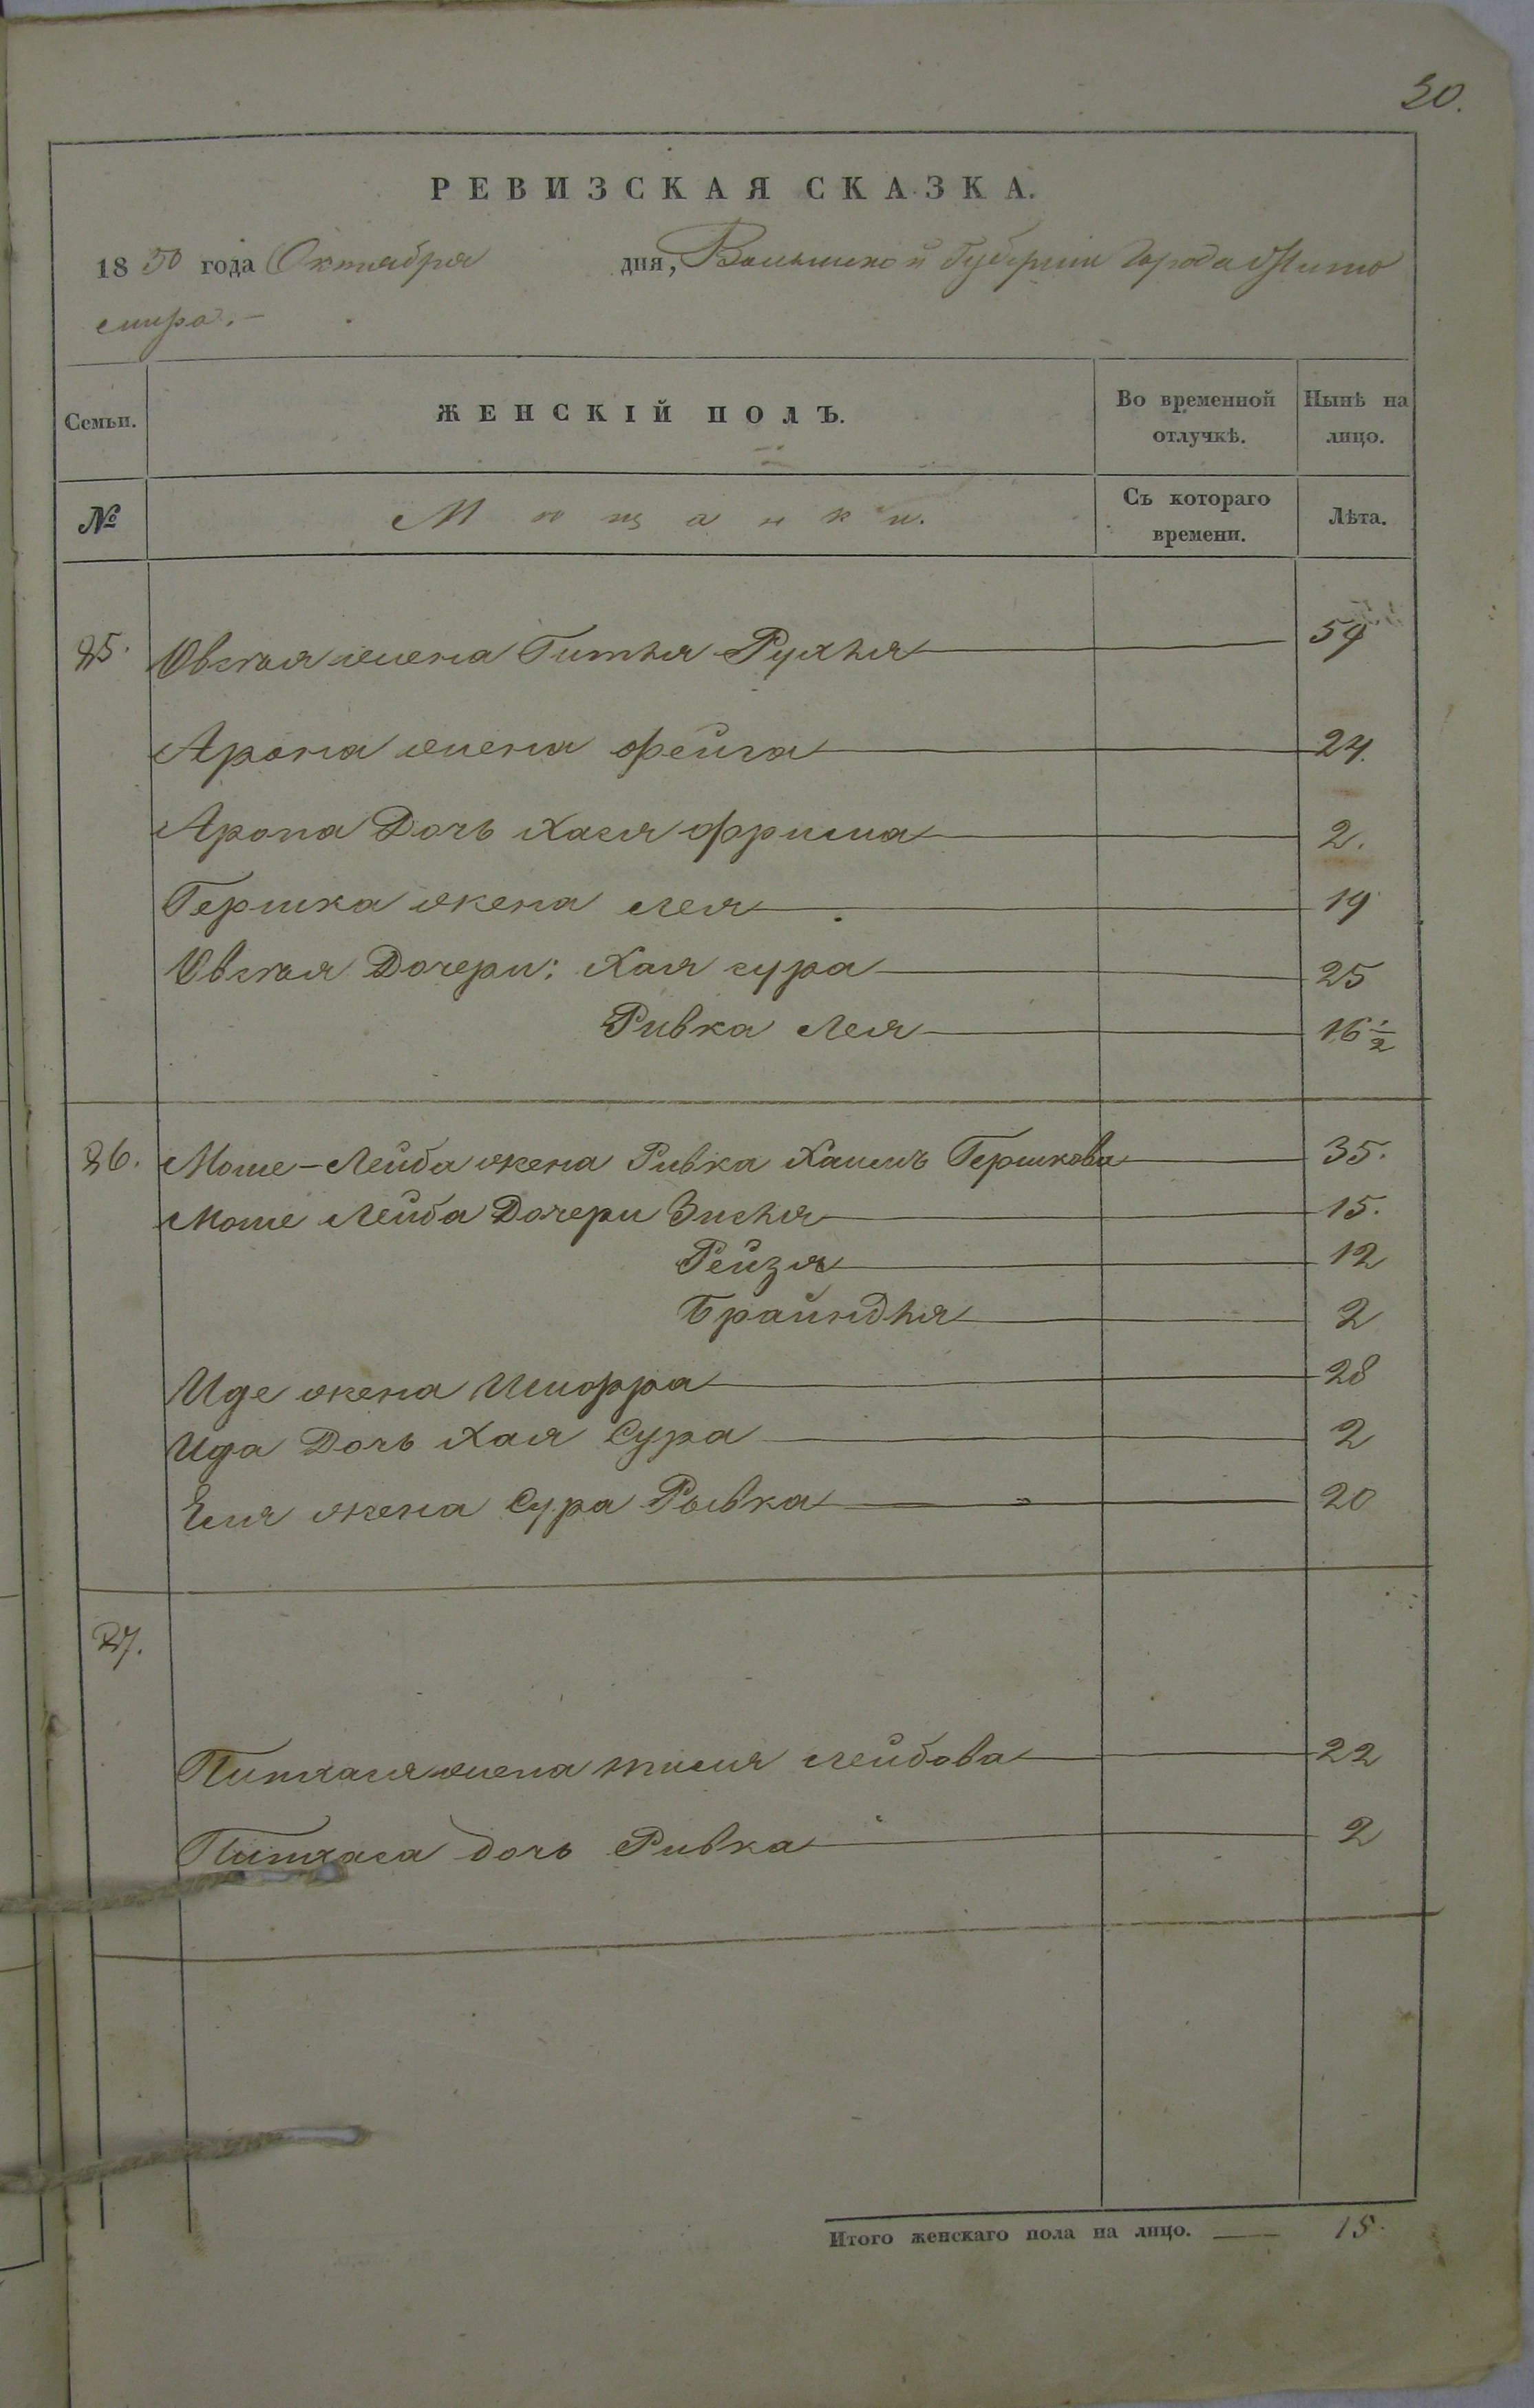 30.
РЕВИЗСКАЯ СКАЗКА.
1850 года Октября дня, Волынской Губернии Города Жито
мира.-
Семьи. ЖЕНСКІЙ ПОЛЪ. Во временной отлучкѣ. Нынѣ на лицо.
№ Мѣщанки. Съ котораго времени. Лѣта.
25. жена Гитля Рухля 54
Арона жена Фейга 24.
Арона Дочь Хася Фрима 2.
Гершка жена Лея 19
Дочери: Хая сура 25
Ривка Лея 16 1/2
26. Моше-Лейба жена Ривка Гершкова 35.
Моше Лейба Дочери Зисля 15.
Рейзя 12
Брайндля 2
Иде жена Шифра 28
Ида Дочь Хая Сура 2
Еля жена Сура Рывка 20
27.
жена Лейбова 22
Пинхаса дочь Ривка 2
Итого женскаго пола на лицо. 15.